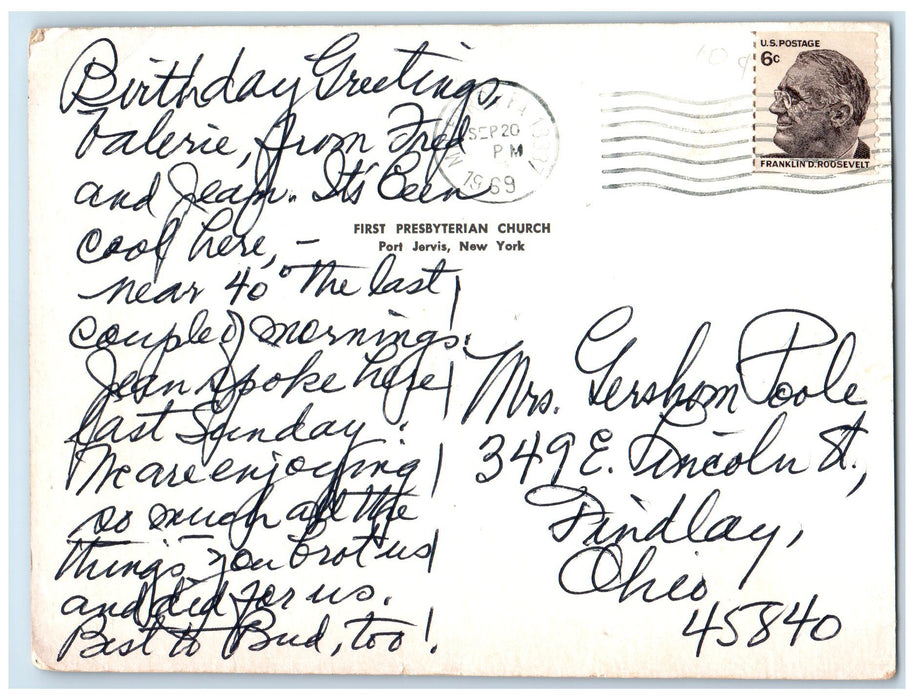 Birthday Greetings,
Valerie, from Fred
and Jean. It's been
cool here, –
near 40° the last
couple of mornings.
Jean spoke here
last Sunday.
We are enjoying
so much all the
things you brot us
and did for us.
Best to Bud, too!
SEP 20
PM
1969
U.S. POSTAGE
6c
FRANKLIN D. ROOSEVELT
FIRST PRESBYTERIAN CHURCH
Port Jervis, New York
Mrs. Gershom Poole
349 E. Lincoln St.,
Findlay,
Ohio
45840